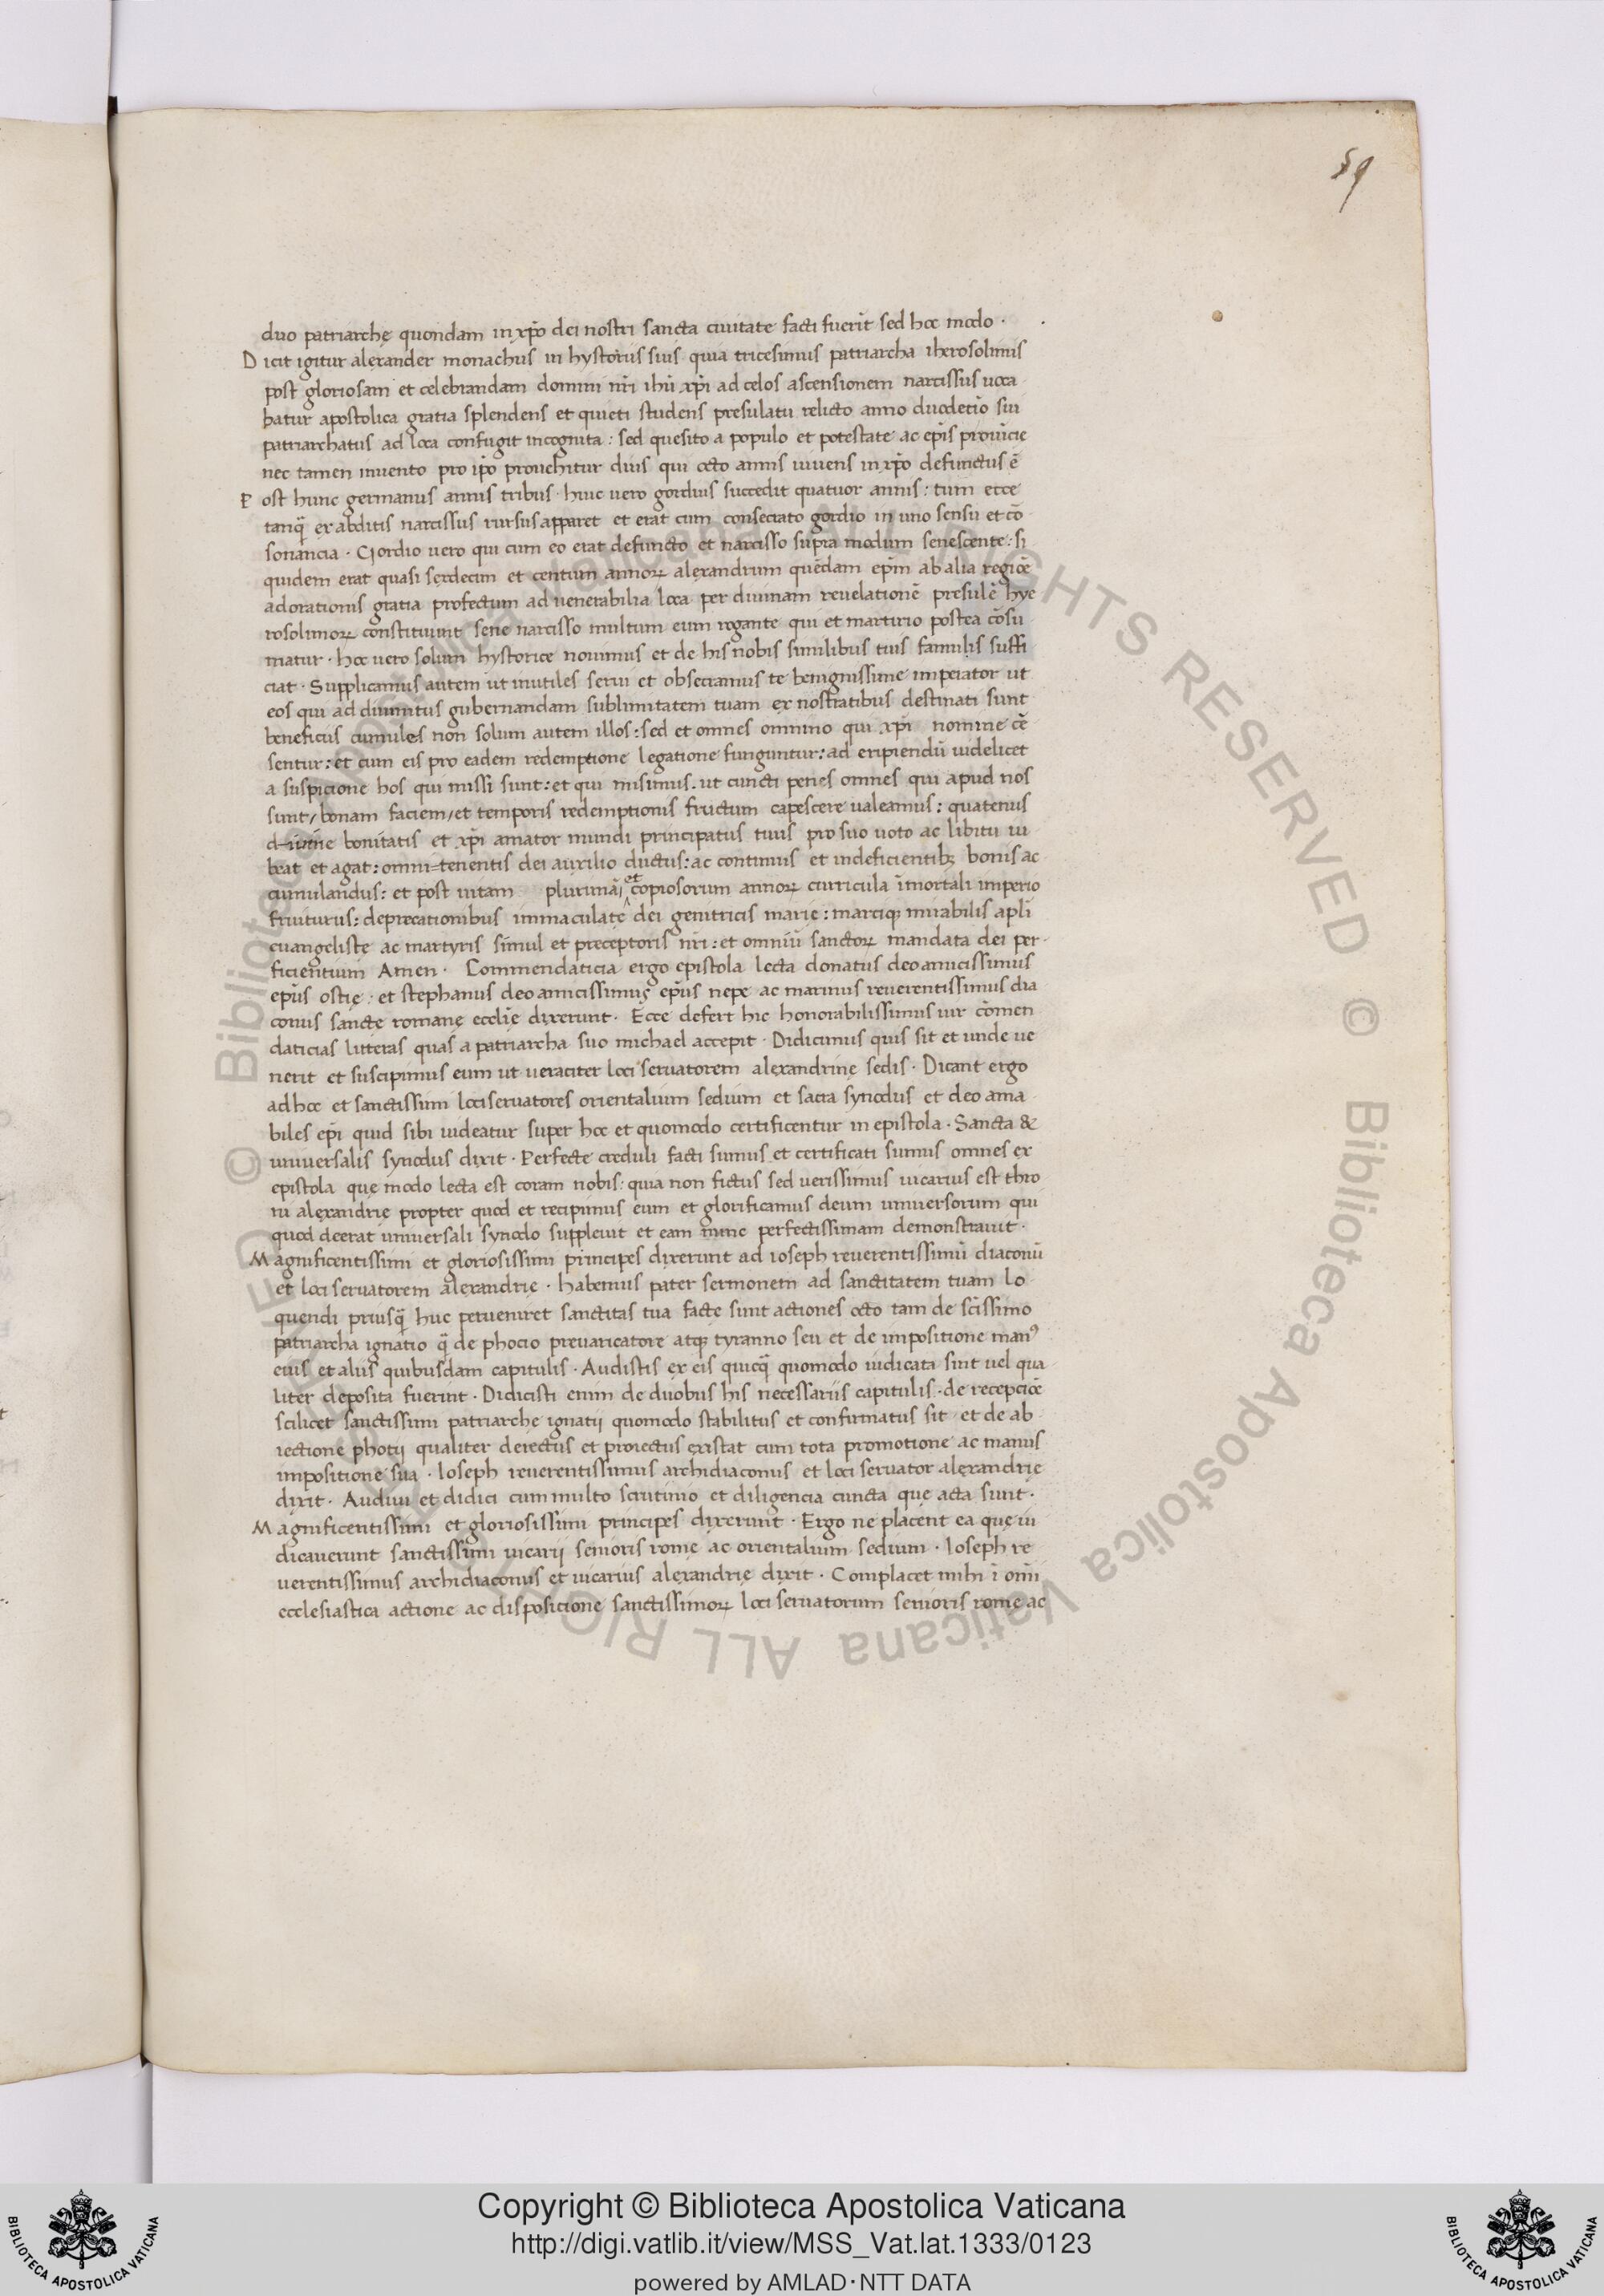 59
duo patriarchę quondam in xp̄o dei nostri sancta ciuitate facti fuerīt sed hoc modo ·
Dicit igitur alexander monachus in hystoriis suis quia tricesimus patriarcha iherosolimis
post gloriosam et celebrandam domini nr̄i ihū xp̄i ad celos ascensionem narcissus uoca
batur apostolica gratia splendens et quieti studens presulatu relicto anno duodecīo sui
patriarchatus ad loca confugit incognita : sed quesito a populo et potestate ac ep̄is prouīcie
nec tamen inuento pro ip̄o prouehitur diuis qui octo annis uiuens in xp̄o defunctus ē
Post hunc germanus annis tribus · huic uero gordius succedit quatuor annis : tum ecce
tanq̄ ex abditis narcissus rursus apparet et erat cum consecrato gordio in uno sensu et cō
sonancia · Gordio uero qui cum eo erat defuncto et narcisso supra modum senescente : si
quidem erat quasi sexdecim et centum annoꝝ alexandrum quēdam ep̄m ab alia regiōe
adorationis gratia profectum ad uenerabilia loca per diuinam reuelationē presulē hye
rosolimoꝝ constituunt sene narcisso multum eum rogante qui et martirio postea cōsu
matur · hoc uero solum hystorice nouimus et de his nobis similibus tuis famulis suffi
ciat · Supplicamus autem ut inutiles serui et obsecramus te benignissime imperator ut
eos qui ad diuinitus gubernandam sublimitatem tuam ex nostratibus destinati sunt
beneficiis cumules non solum autem illos : sed et omnes omnino qui xp̄i nomine cē
sentur : et cum eis pro eadem redemptione legatione funguntur : ad eripiendū uidelicet
a suspicione hos qui missi sunt : et qui misimus . ut cuncti penes omnes qui apud nos
sunt / bonam faciem / et temporis redemptionis fructum capescere ualeamus : quatenus
diuine bonitatis et xp̄i amator mundi principatus tuus pro suo uoto ac libitu iu
beat et agat : omni-tenentis dei auxilio ductus : ac continuis et indeficientibꝫ bonis ac
cumulandus : et post uitam plurimā et copiosorum annoꝝ curricula īmortali imperio
fruiturus : deprecationibus immaculatę dei genitricis marię : marciqꝫ mirabilis apl̄i
euangelistę ac martyris simul et preceptoris nr̄i : et omniū sanctoꝝ mandata dei per-
ficientium Amen · Commendaticia ergo epistola lecta donatus deo amicissimus
ep̄us ostię · et stephanus deo amicissimus ep̄us nepe ac marinus reuerentissimus dia
conus sanctę romanę eccl̄ię dixerunt · Ecce defert hic honorabilissimus uir cōmen
daticias litteras quas a patriarcha suo michael accepit · Didicimus quis sit et unde ue
nerit et suscipimus eum ut ueraciter loci seruatorem alexandrinę sedis · Dicant ergo
ad hoc et sanctissimi lociseruatores orientalium sedium et sacra synodus et deo ama
biles ep̄i quid sibi uideatur super hoc et quomodo certificentur in epistola · Sancta &
uniuersalis synodus dixit · Perfecte creduli facti sumus et certificati sumus omnes ex
epistola quę modo lecta est coram nobis : quia non fictus sed uerissimus uicarius est thro
ni alexandrię propter quod et recipimus eum et glorificamus deum uniuersorum qui
quod deerat uniuersali synodo suppleuit et eam nunc perfectissimam demonstrauit ·
Magnificentissimi et gloriosissimi principes dixerunt ad ioseph reuerentissimū diaconū
et loci seruatorem alexandrię · habemus pater sermonem ad sanctitatem tuam lo
quendi priusq̄ huc perueniret sanctitas tua factę sunt actiones octo tam de scissimo
patriarcha ignatio q̄ de phocio preuaricatore atqꝫ tyranno seu et de impositione man⁹
eius et aliis quibusdam capitulis · Audistis ex eis quicq̄ quomodo iudicata sint uel qua
liter deposita fuerint · Didicisti enim de duobus his necessariis capitulis · de recepciōe
scilicet sanctissimi patriarchę ignatij quomodo stabilitus et confirmatus sit et de ab
iectione photij qualiter deiectus et proiectus existat cum tota promotione ac manus
impositione sua · Ioseph reuerentissimus archidiaconus et loci seruator alexandrię
dixit · Audiui et didici cum multo scrutinio et diligencia cuncta quę acta sunt ·
Magnificentissimi et gloriosissimi principes dixerunt · Ergo ne placent ea quę iu
dicauerunt sanctissimi uicarij senioris romę ac orientalium sedium · Ioseph re
uerentissimus archidiaconus et uicarius alexandrię dixit · Complacet mihi ī om̄i
ecclesiastica actione ac disposicione sanctissimoꝝ loci seruatorum senioris romę ac
Copyright © Biblioteca Apostolica Vaticana
http://digi.vatlib.it/view/MSS_Vat.lat.1333/0123
powered by AMLAD·NTT DATA